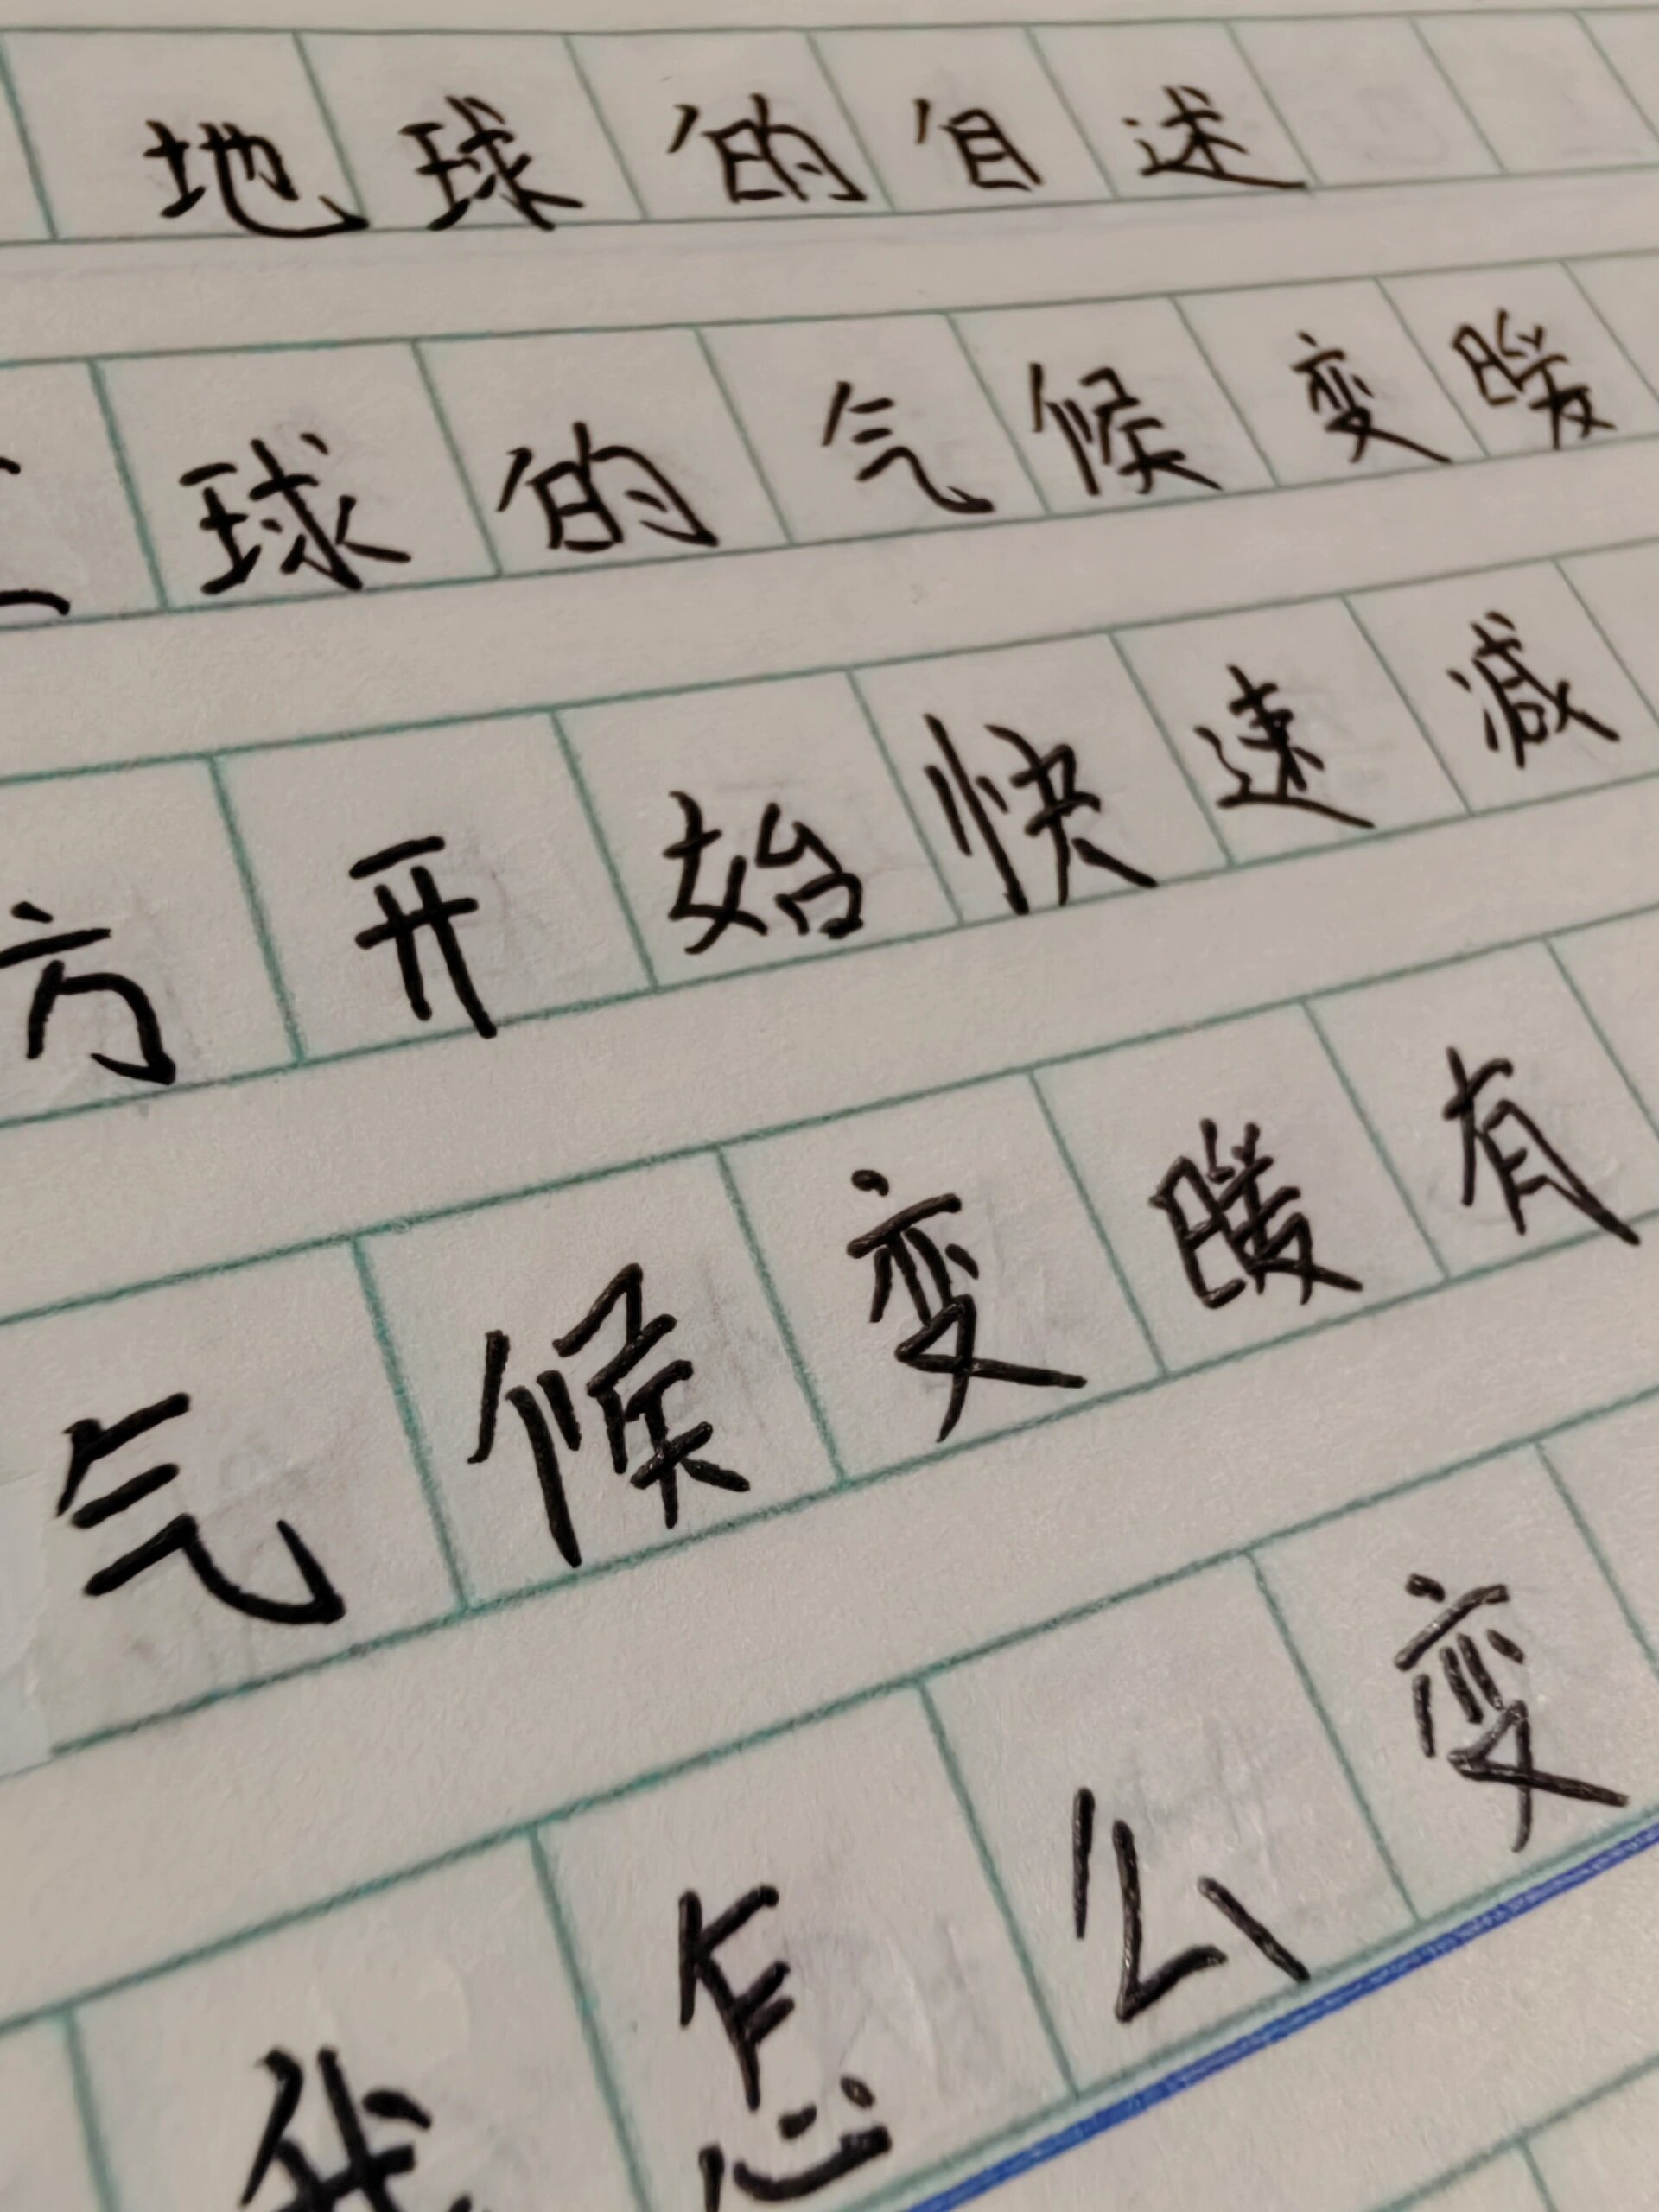 地球的自述
球的气候变暖
方开始快速减
气候变暖有
我怎么变